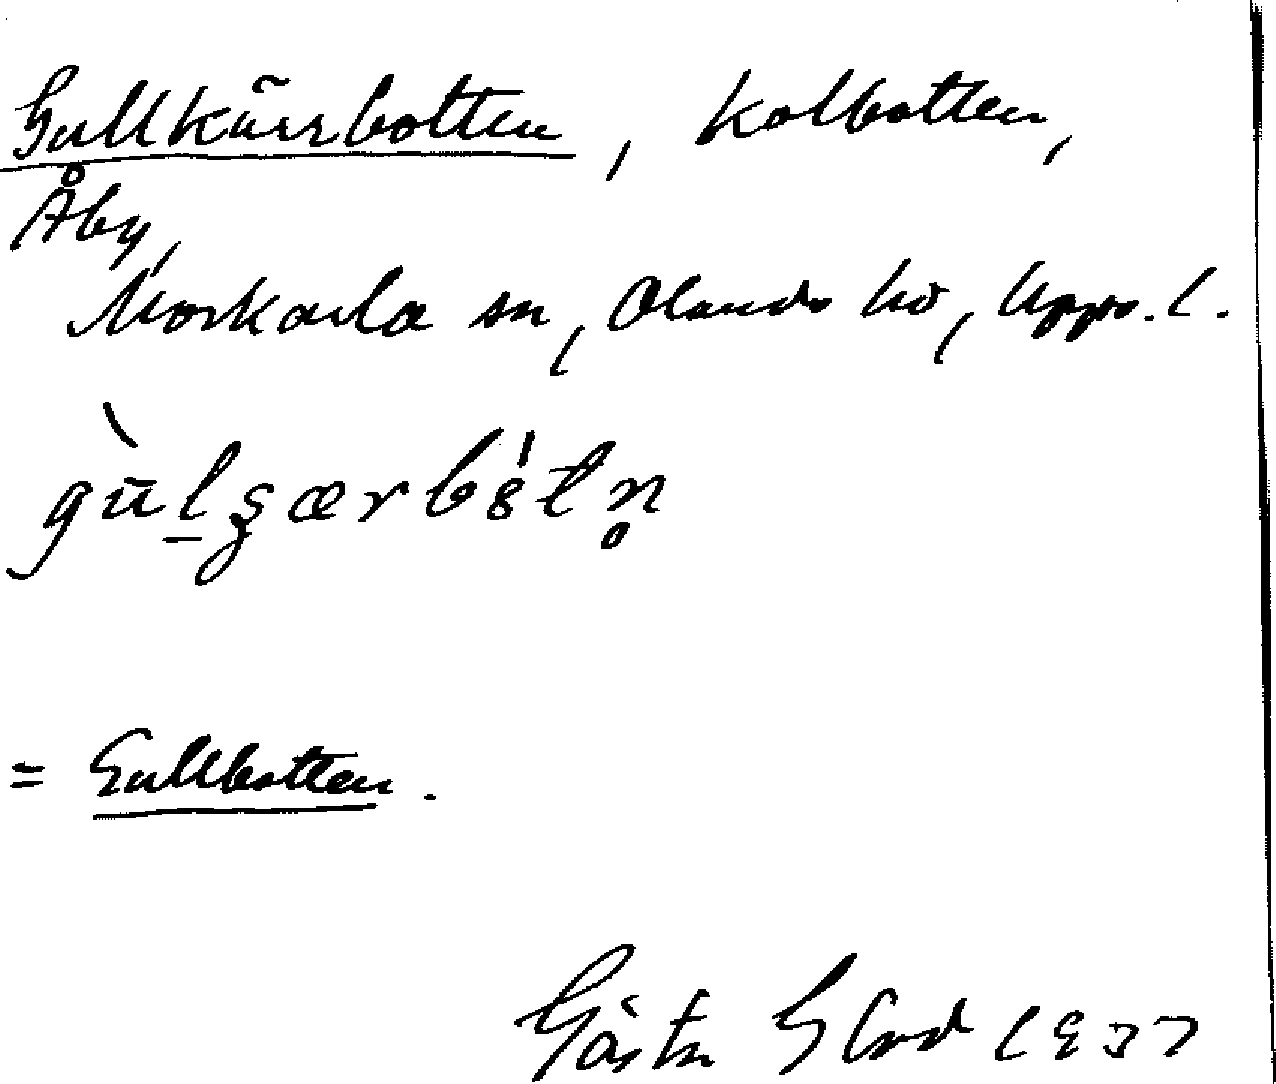 Gullkärrbotten, kolbotten,
Åby,
Morkarla sn, Olands hd, Upps. l.
= Gullbotten.
Gösta 1937